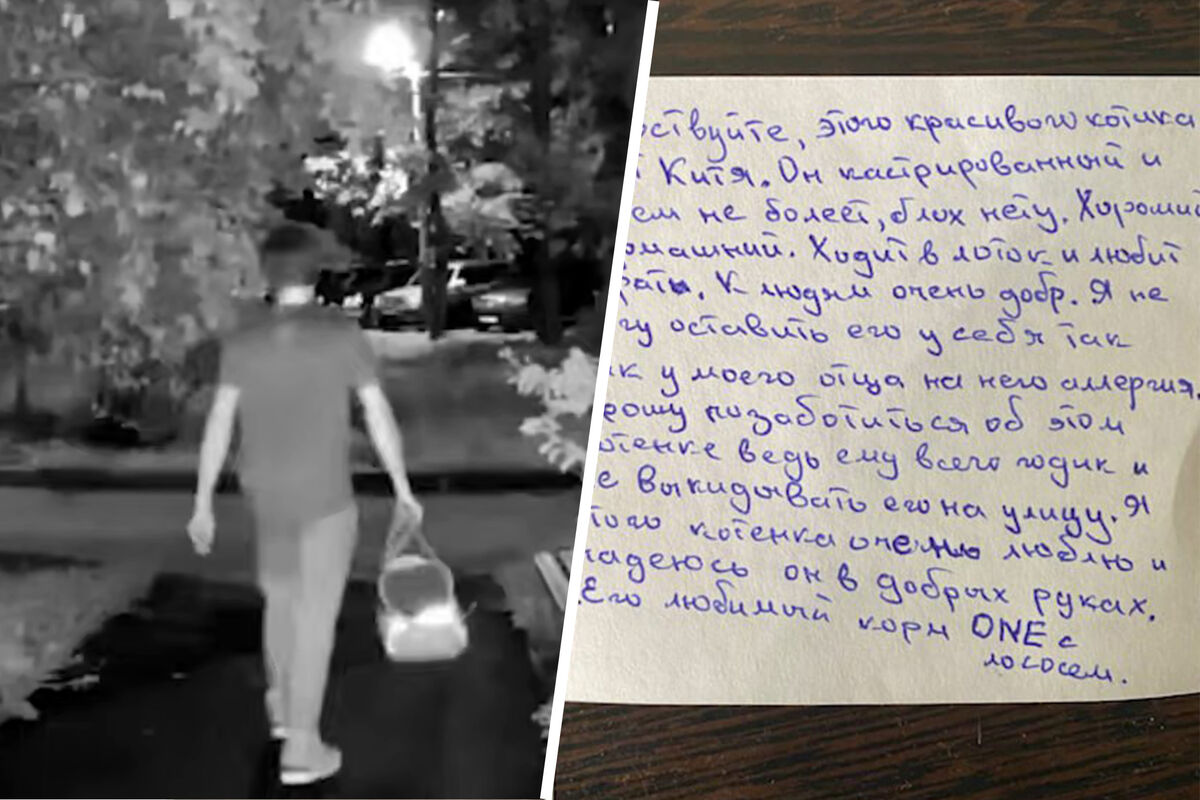 ствуйте, этого красивого котика
Китя. Он кастрированный и
ем не болеет, блох нету. Хороший
омашний. Ходит в лоток и любит
рать. К людям очень добр. Я не
гу оставить его у себя так
ак у моего отца на него аллергия.
рошу позаботиться об этом
отенке ведь ему всего годик и
е выкидывать его на улицу. Я
того котенка очень люблю и
надеюсь он в добрых руках.
Его любимый корм ONE с
лососем.